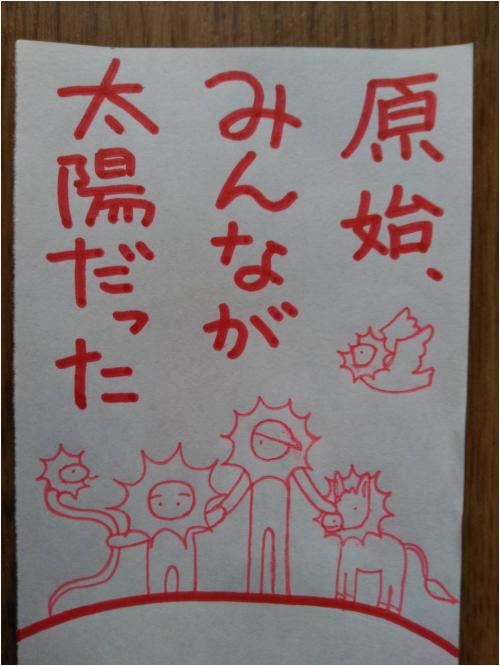 原始、
みんなが
太陽だった